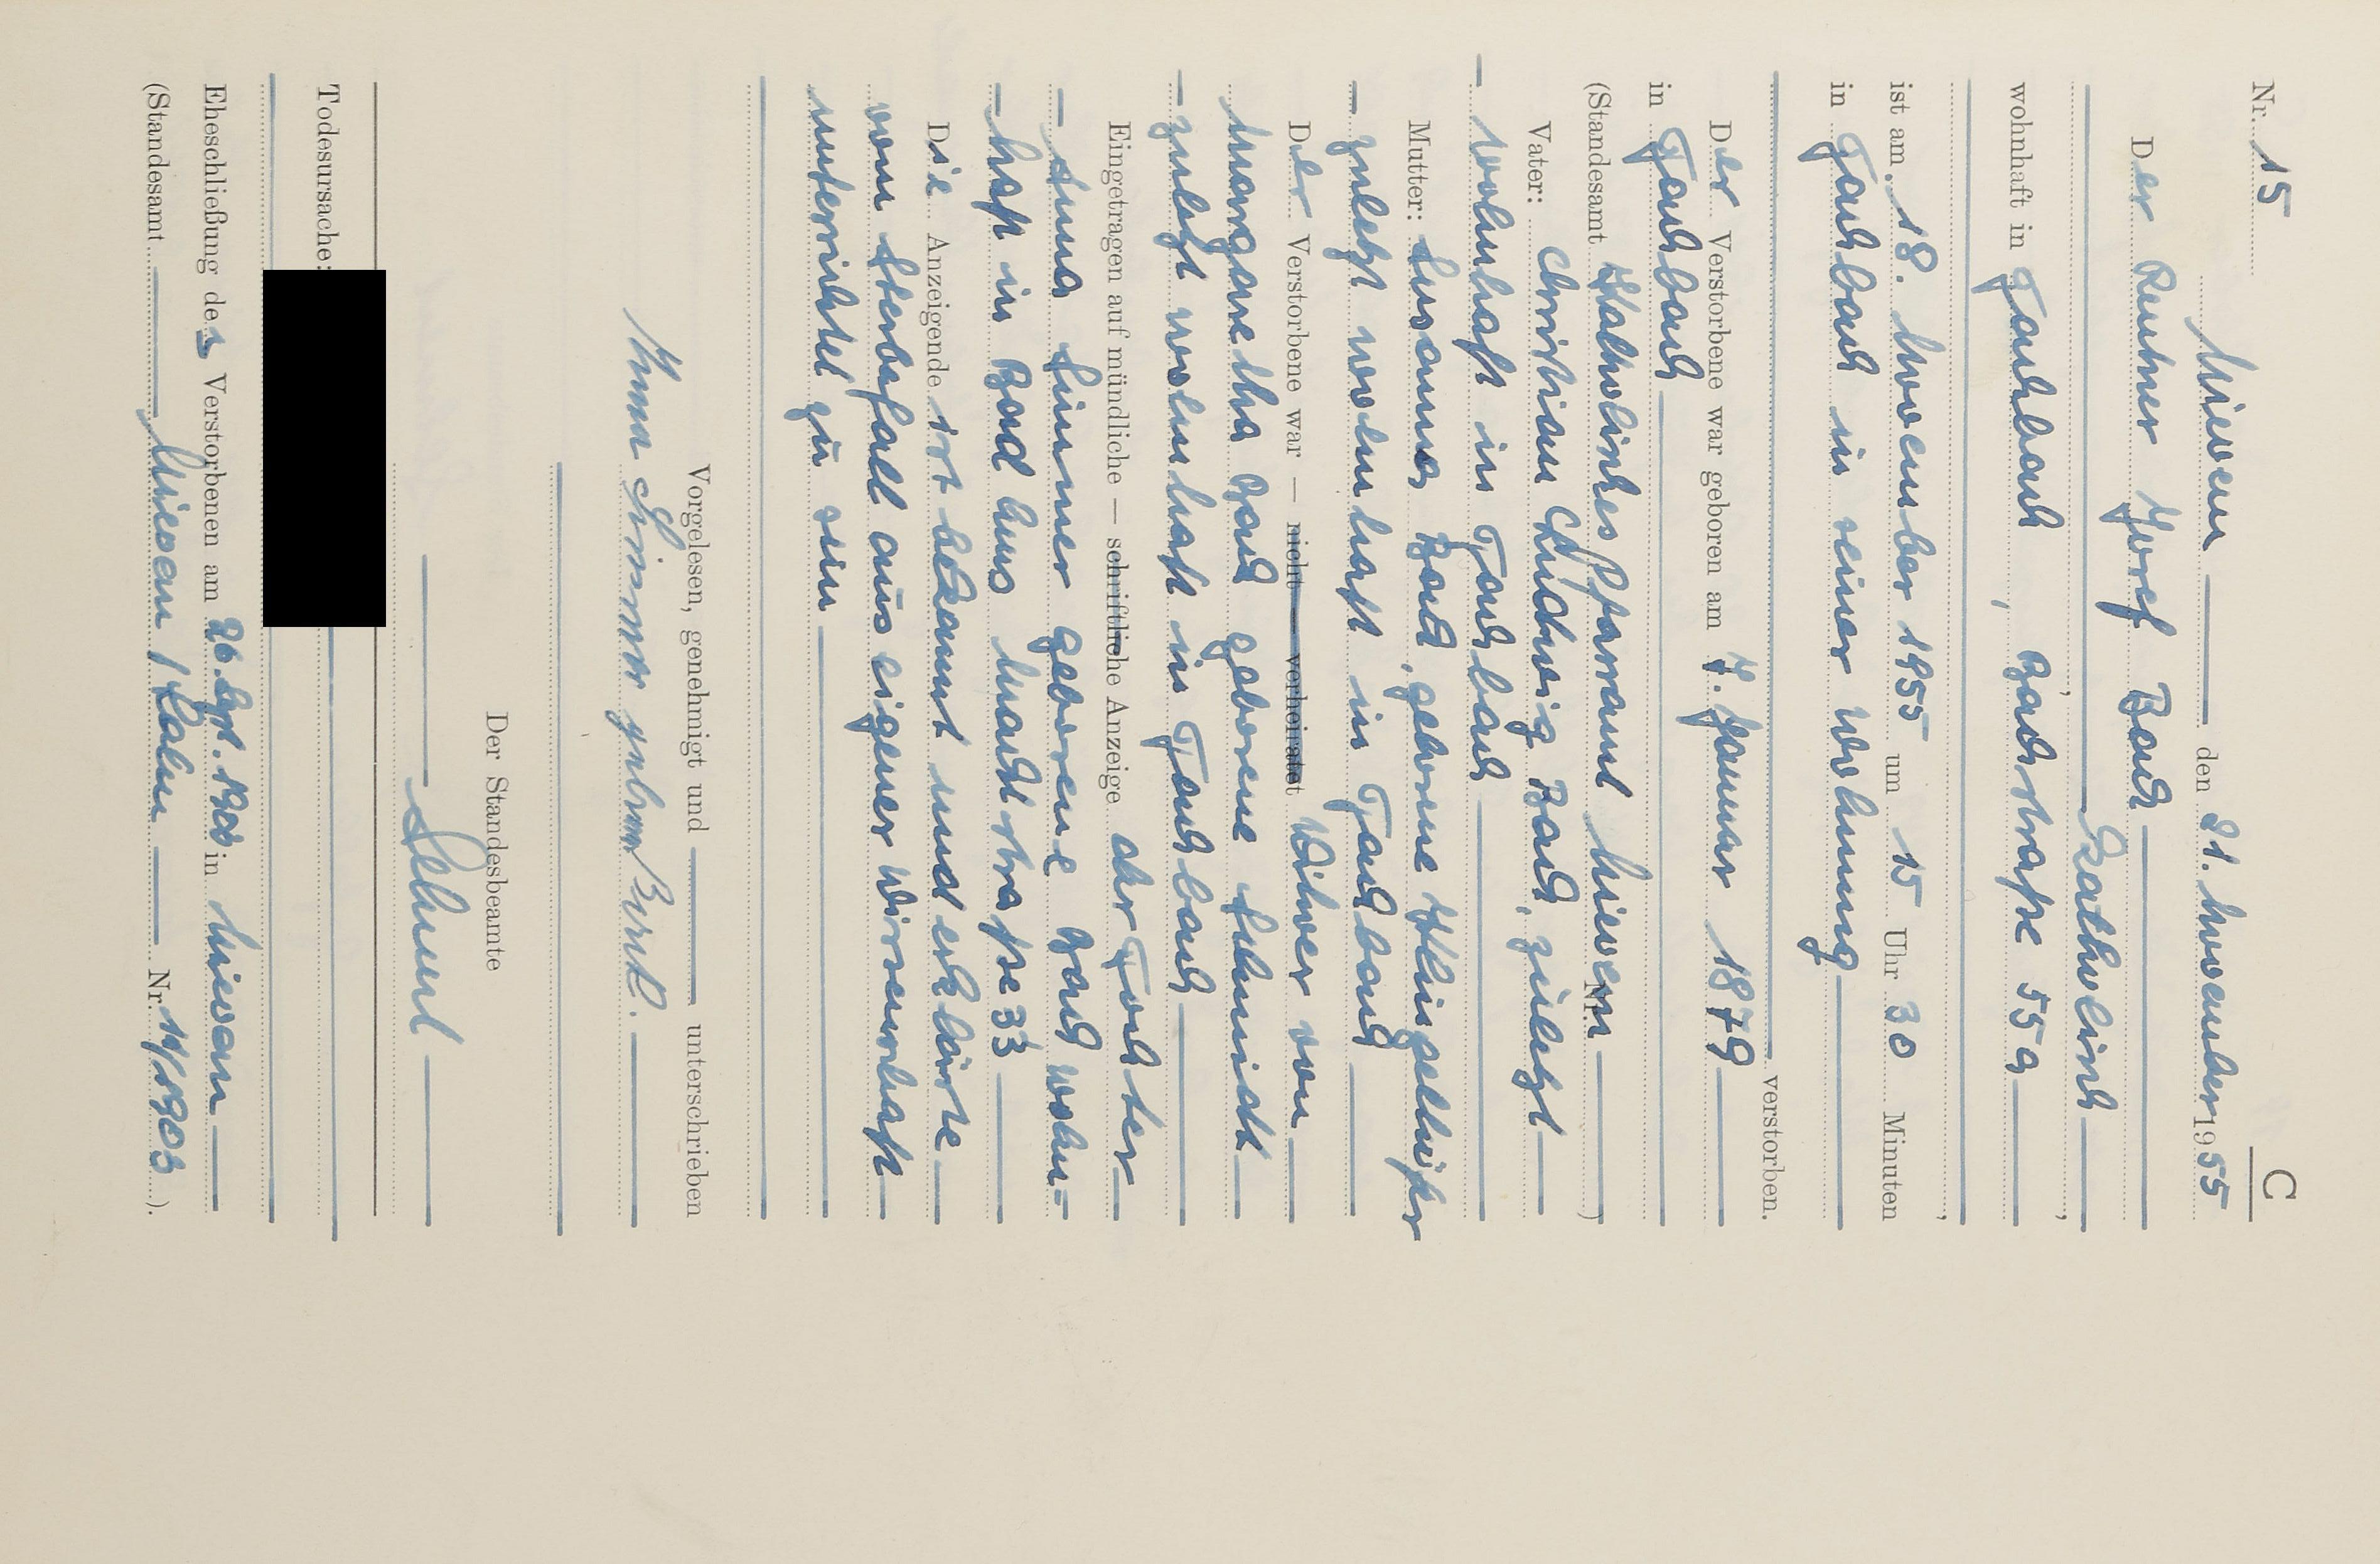 C
Nr. 15
Miesen, den 21. November 1955
Der Rentner Josef Bach
Katholisch,
wohnhaft in Fachbach, Bachstraße 55a,
ist am 18. November 1955 um 15 Uhr 30 Minuten
in Fachbach in seiner Wohnung
verstorben.
Der Verstorbene war geboren am 7. Januar 1879
in Fachbach
(Standesamt Katholisches Pfarramt Nr.)
Vater: Christian Ludwig Bach, zuletzt
wohnhaft in Fachbach
Mutter: Susanna Bach, geborene
zuletzt wohnhaft in Fachbach
Der Verstorbene war — nicht — verheiratet Witwer von
Margaretha Bach geborene Schmidt
zuletzt wohnhaft in Fachbach
Eingetragen auf mündliche — schriftliche Anzeige der Tochter
Anna Simmer geborene Bach wohn=
haft in Bad Ems Marktstraße 33
Die Anzeigende ist bekannt und erklärte
vom Sterbefall aus eigener Wissenschaft
unterrichtet zu sein
Vorgelesen, genehmigt und unterschrieben
Anna Simmer geborene Bach.
Der Standesbeamte
Todesursache:
Eheschließung des Verstorbenen am 26. Sept. 1903 in
(Standesamt / Lahn Nr. 14/1903).